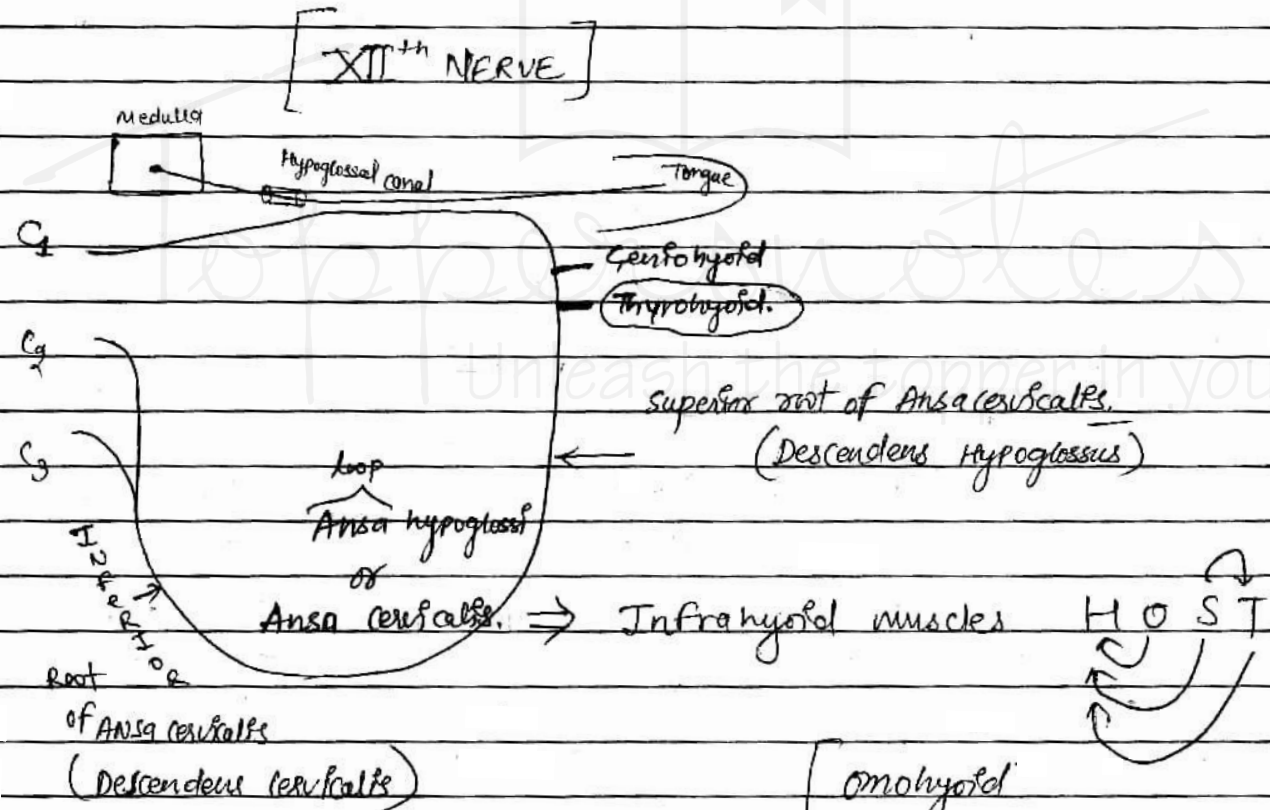 XIIth NERVE
Medulla
Hypoglossal canal
Tongue
C1
Geniohyoid
Thyrohyoid.
C2
Superior root of Ansa cervicalis.
(Descendens Hypoglossus)
C3
loop
Ansa hypoglossi
or
Ansa cervicalis. ⇒ Infrahyoid muscles H O S T
Root
of Ansa cervicalis
(Descendens cervicalis)
omohyoid
Toppersnotes
Unleash the topper in you